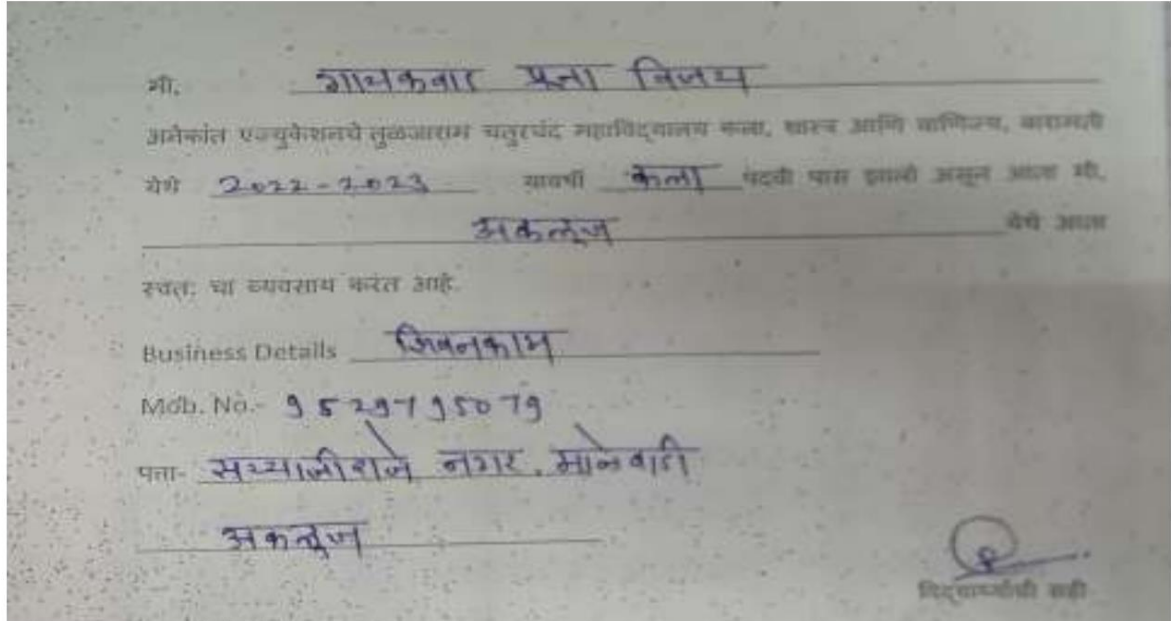 मी, गायकवाड प्रज्ञा विजय
अनेकांत एज्युकेशनचे तुळजाराम चतुरचंद महाविद्यालय कला, शास्त्र आणि वाणिज्य, बारामती
येथे 2022-2023 यावर्षी कला पदवी पास झालो असून आता मी,
अकलूज येथे आता
स्वतः चा व्यवसाय करत आहे.
Business Details शिवनकाम
Mob. No.- 9529795079
पत्ता- सय्याजीराजे नगर, माळेवाडी
अकलूज
विद्यार्थ्याची सही